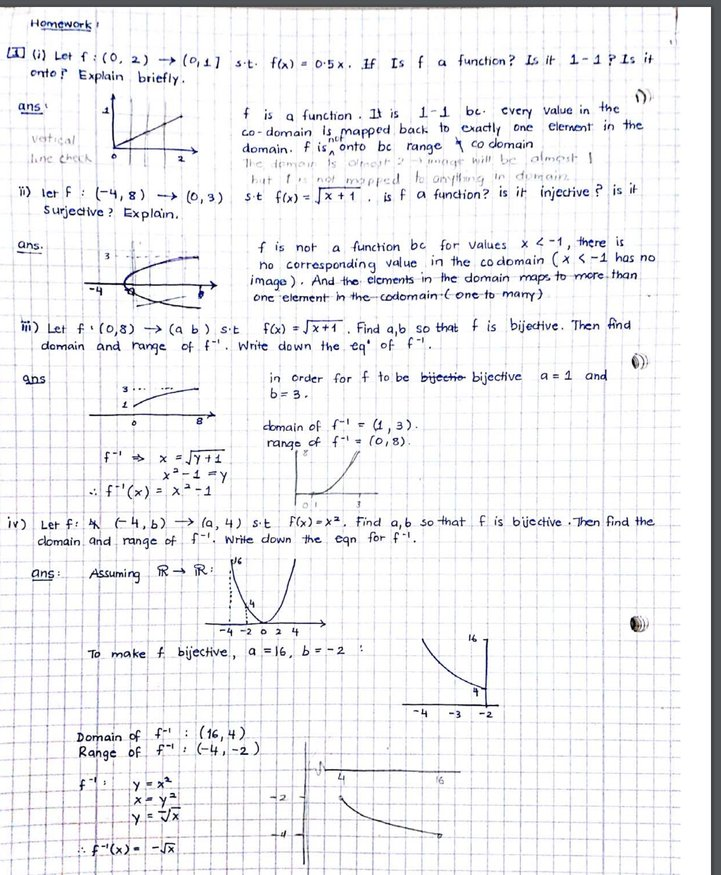 Homework:
[1] (i) Let f : (0, 2) → (0,1] s.t. f(x) = 0.5x. If Is f a function? Is it 1-1? Is it
onto? Explain briefly.
ans:
1
0
2
vertical
line check
f is a function. It is 1-1 bc. every value in the
co-domain is mapped back to exactly one element in the
domain. f is not onto bc range ≠ co domain
The domain is almost 2 → image will be almost 1
but 1 is not mapped to anything in domain.
ii) let f : (-4, 8) → (0, 3) s.t f(x) = √x+1 . is f a function? is it injective? is it
Surjective? Explain.
ans.
3
-4
8
f is not a function bc for values x < -1, there is
no corresponding value in the codomain (x < -1 has no
image). And the elements in the domain maps to more than
one element in the codomain. (one to many)
iii) Let f : (0,8) → (a b) s.t f(x) = √x+1 . Find a,b so that f is bijective. Then find
domain and range of f⁻¹. Write down the eqⁿ of f⁻¹.
ans
3
1
0
8
in order for f to be bijectio bijective a = 1 and
b = 3.
domain of f⁻¹ = (1, 3).
range of f⁻¹ = (0, 8).
f⁻¹ ⇒ x = √y+1
x² - 1 = y
∴ f⁻¹(x) = x² - 1
8
0 1 3
iv) Let f: (-4, b) → (a, 4) s.t f(x) = x². Find a,b so that f is bijective. Then find the
domain and range of f⁻¹. Write down the eqn for f⁻¹.
ans: Assuming ℝ → ℝ:
16
4
-4 -2 0 2 4
To make f bijective, a = 16, b = -2 :
16
4
-4 -3 -2
Domain of f⁻¹ : (16, 4)
Range of f⁻¹ : (-4, -2)
f⁻¹: y = x²
x = y²
y = -√x
∴ f⁻¹(x) = -√x
4 16
-2
-4